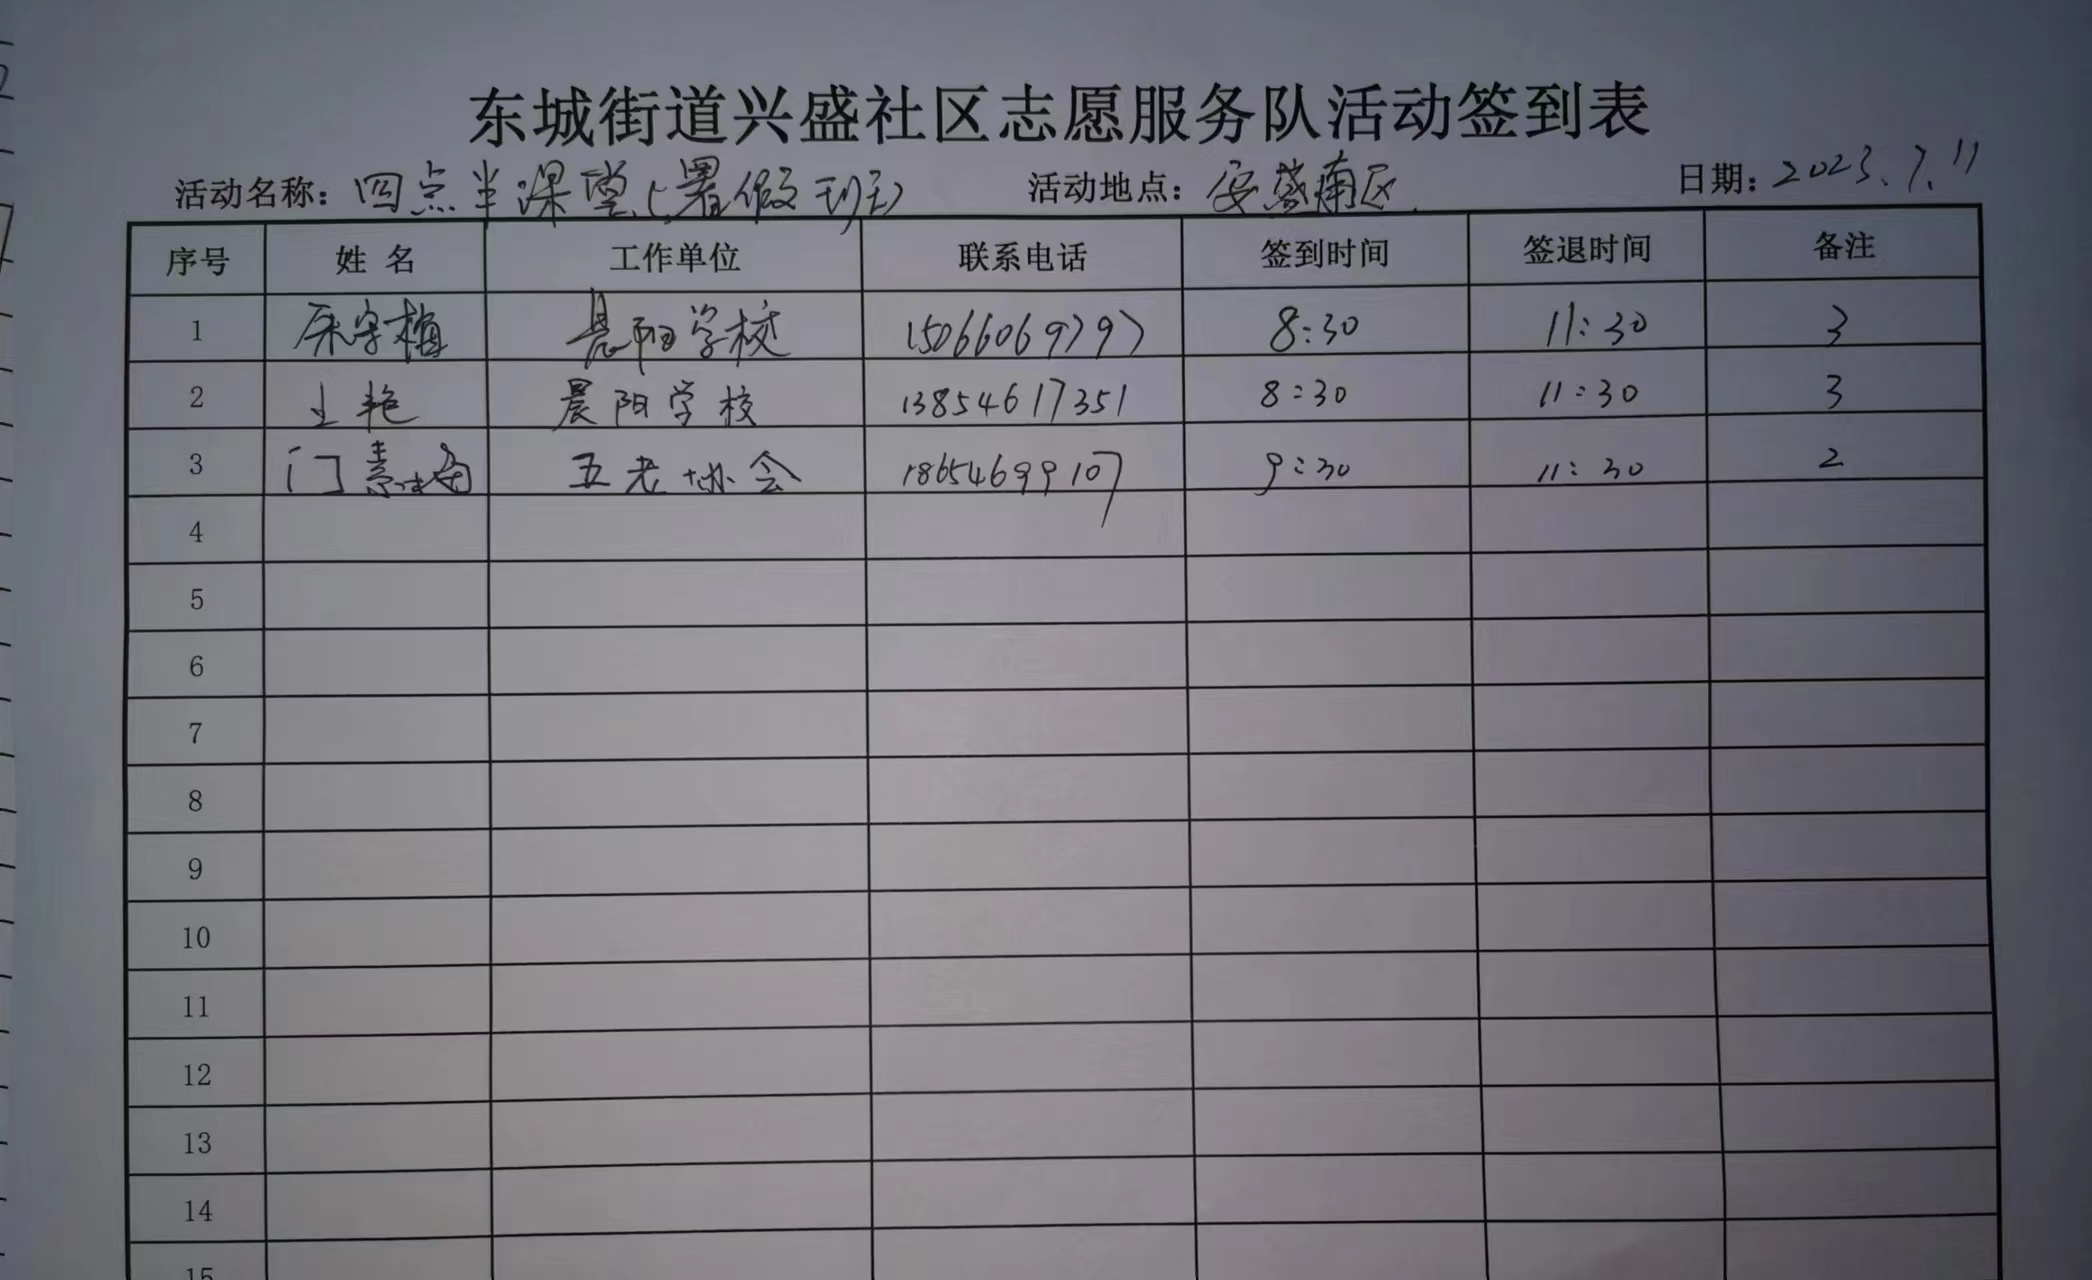 东城街道兴盛社区志愿服务队活动签到表
活动名称：四点半课堂（暑假班） 活动地点：安盛南区 日期：2023.7.11
序号 姓名 工作单位 联系电话 签到时间 签退时间 备注
1 晨阳学校 15066069797 8:30 11:30 3
2 王艳 晨阳学校 13854617351 8:30 11:30 3
3 门素梅 五老协会 18654699107 9:30 11:30 2
4
5
6
7
8
9
10
11
12
13
14
15